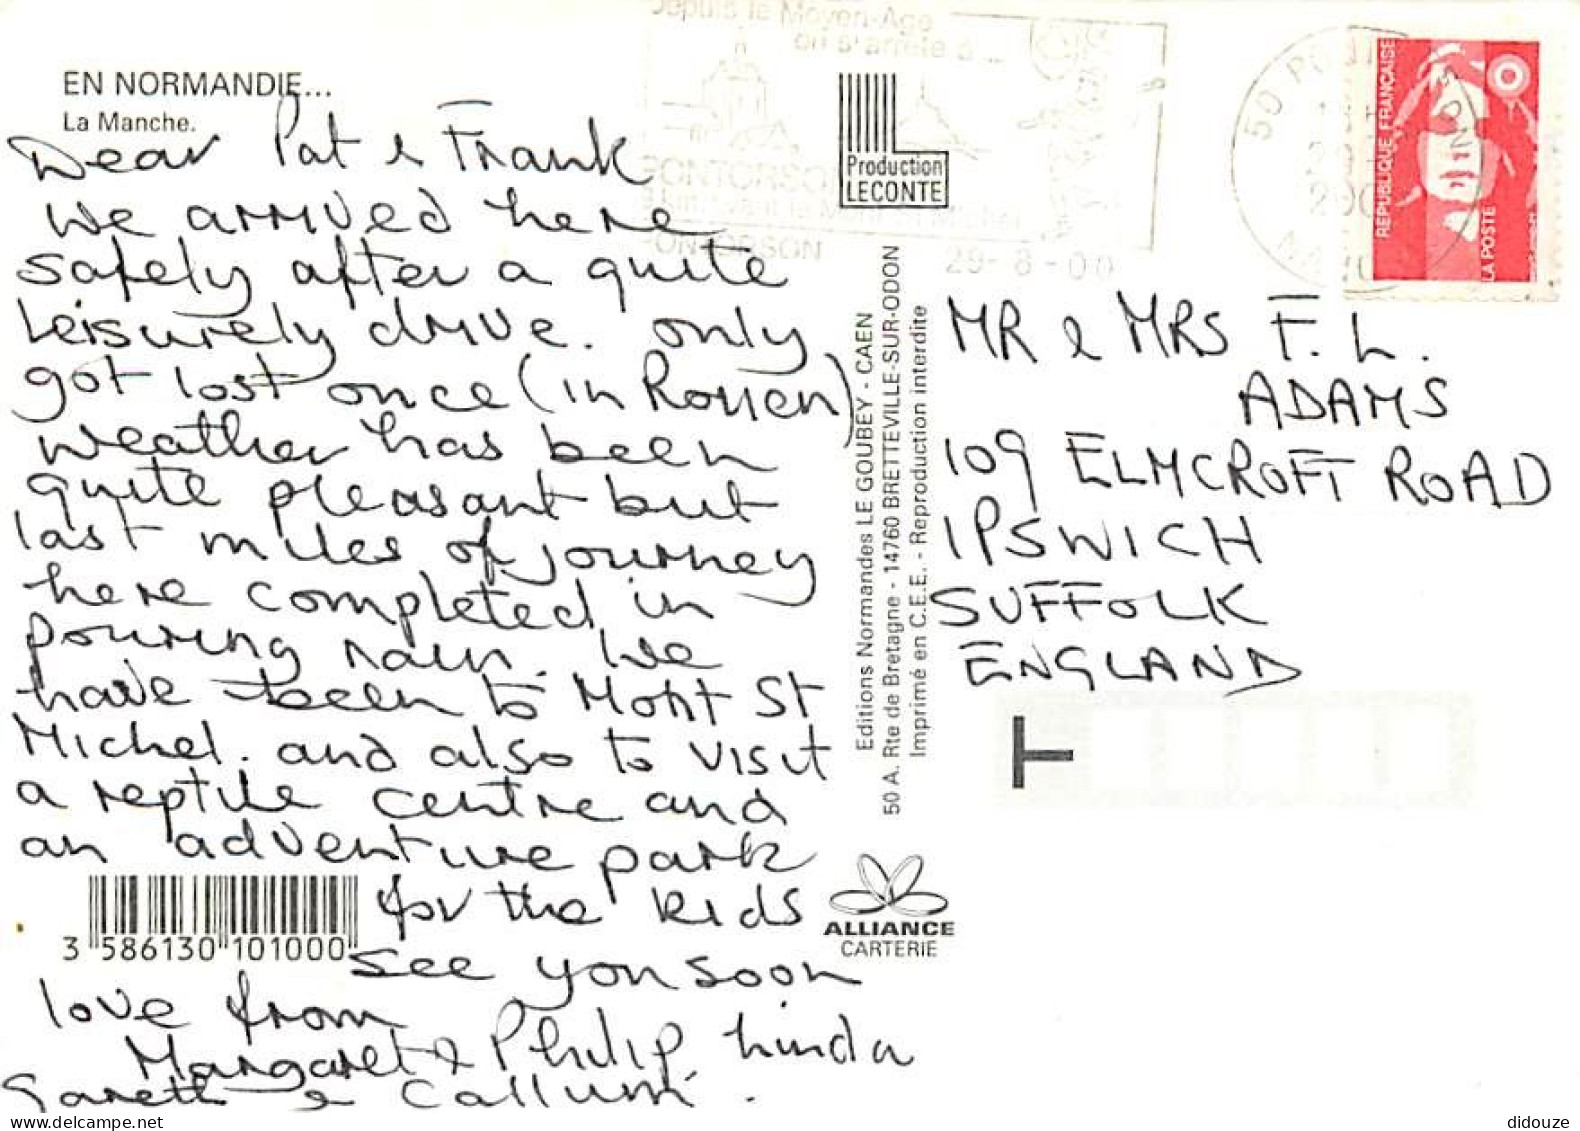 Depuis le Moyen-Age
on s'arrête à...
EN NORMANDIE...
La Manche.
Production
LECONTE
PONTORSON
29-8-00
50
REPUBLIQUE FRANÇAISE
LA POSTE
Dear Pat & Frank
We arrived here
safely after a quite
leisurely drive. only
got lost once (in Rouen)
weather has been
quite pleasant but
last miles of journey
here completed in
pouring rain. We
have been to Mont St
Michel. and also to visit
a reptile centre and
an adventure park
for the kids
See you soon
love from
Margaret & Philip, Linda
Gareth & Callum.
3 586130 101000
Editions Normandes LE GOUBEY - CAEN
50 A. Rte de Bretagne - 14760 BRETTEVILLE-SUR-ODON
Imprimé en C.E.E. - Reproduction interdite
ALLIANCE
CARTERIE
MR & MRS F. L.
ADAMS
109 ELMCROFT ROAD
IPSWICH
SUFFOLK
ENGLAND
T
didouze